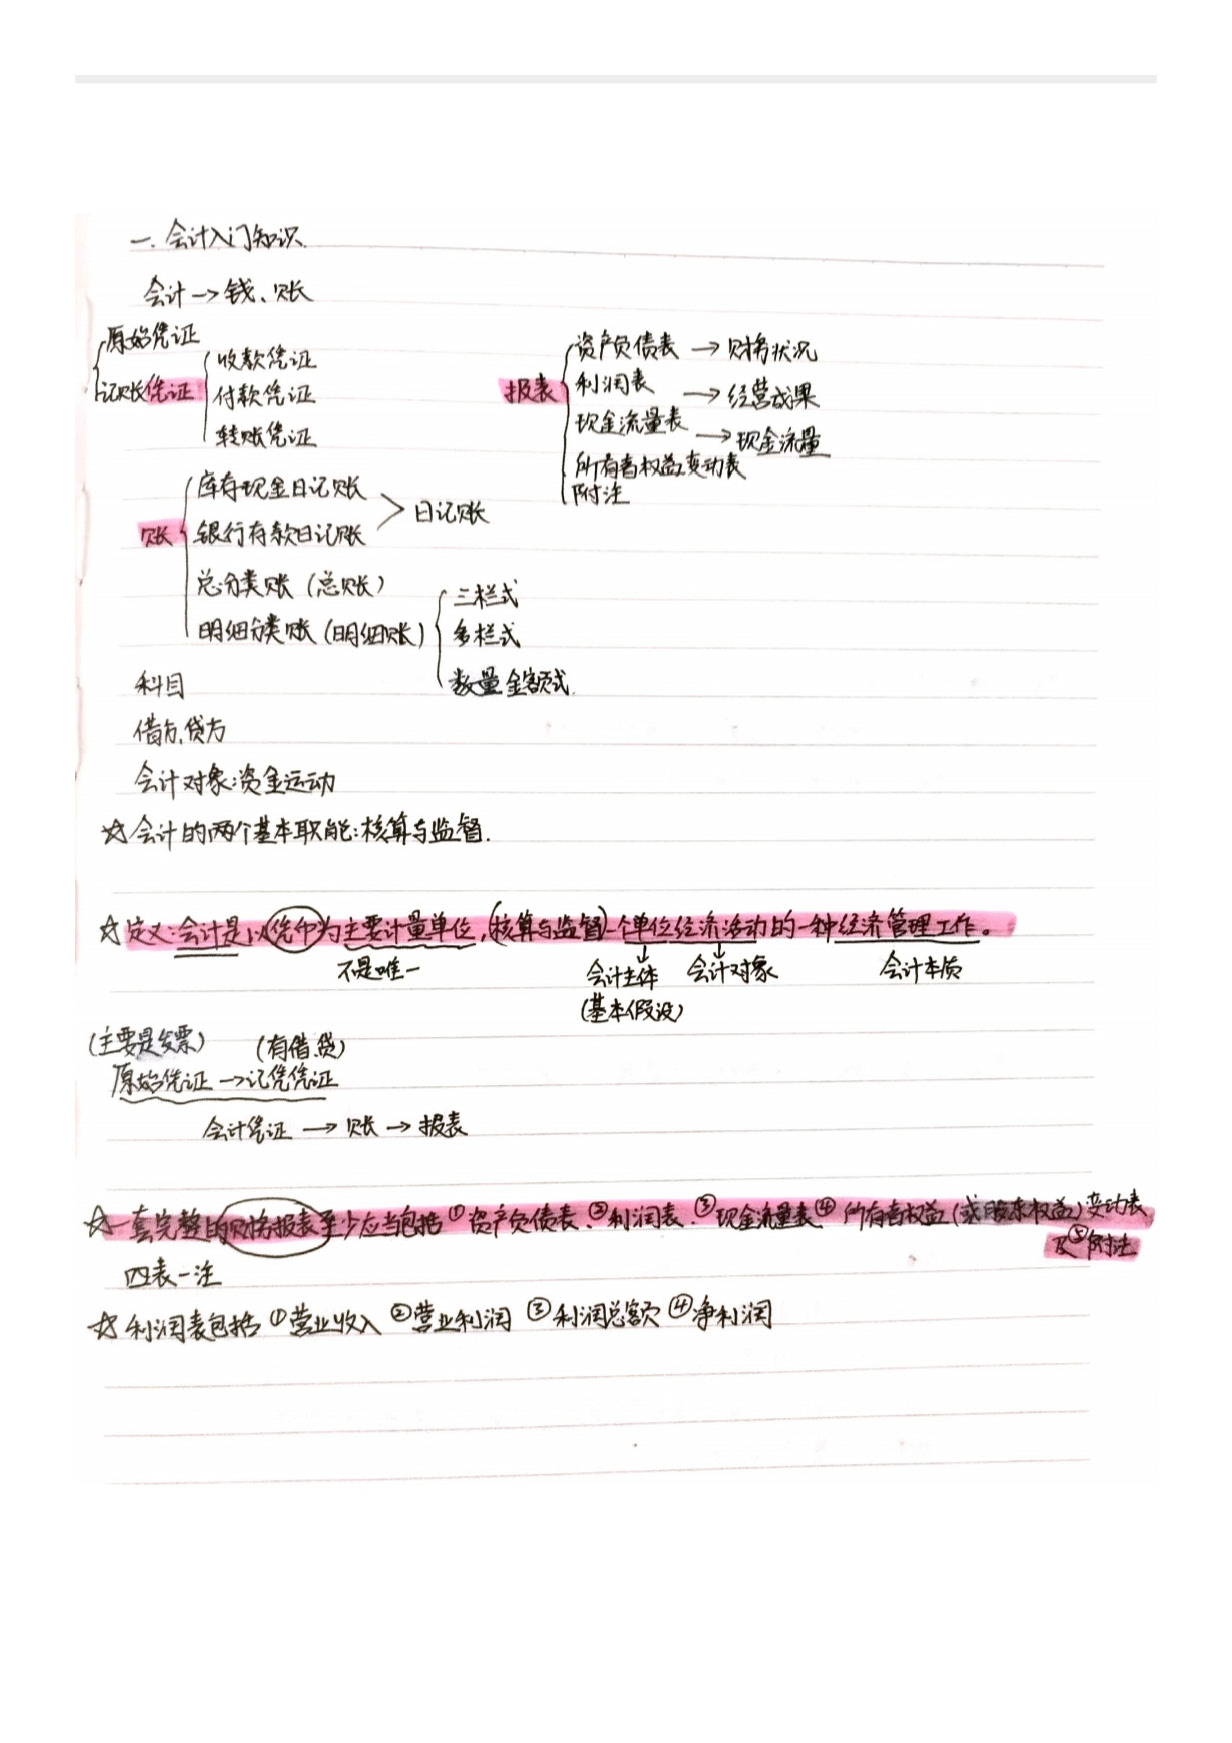 一. 会计入门知识
会计→钱、账
原始凭证
记账凭证
收款凭证
付款凭证
转账凭证
报表
资产负债表 → 财务状况
利润表 → 经营成果
现金流量表 → 现金流量
所有者权益变动表
附注
账
库存现金日记账
银行存款日记账
> 日记账
总分类账 (总账)
明细分类账 (明细账)
三栏式
多栏式
数量金额式.
科目
借方、贷方
会计对象:资金运动
☆会计的两个基本职能:核算与监督.
☆定义:会计是以货币为主要计量单位,(核算与监督)一个单位经济活动的一种经济管理工作。
不是唯一 ↓会计主体 ↓会计对象 会计本质
(基本假设)
(主要是发票) (有借.贷)
原始凭证→记凭凭证
会计凭证 → 账 → 报表
☆一套完整的财务报表至少应当包括①资产负债表、②利润表、③现金流量表④所有者权益(或股东权益)变动表
及⑤附注
四表一注
☆利润表包括①营业收入 ②营业利润 ③利润总额④净利润